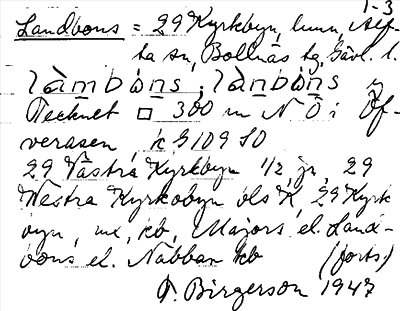 1-3
Landbons = 29 Kyrkbyn, hmn, Alf-
ta sn, Bollnäs tg, Gävl. l.
làmbòns, lànbòns
Tecknet □ 300 m N Ö i Öf-
verasen, k G 109 SO
29 Västra Kyrkbyn 1/2, jr, 29
Westra Kyrkobyn bls K, 29 Kyrk
byn, me, kb, Majors el. Land-
bons el. Nabban kb (forts.)
F. Birgerson 1947